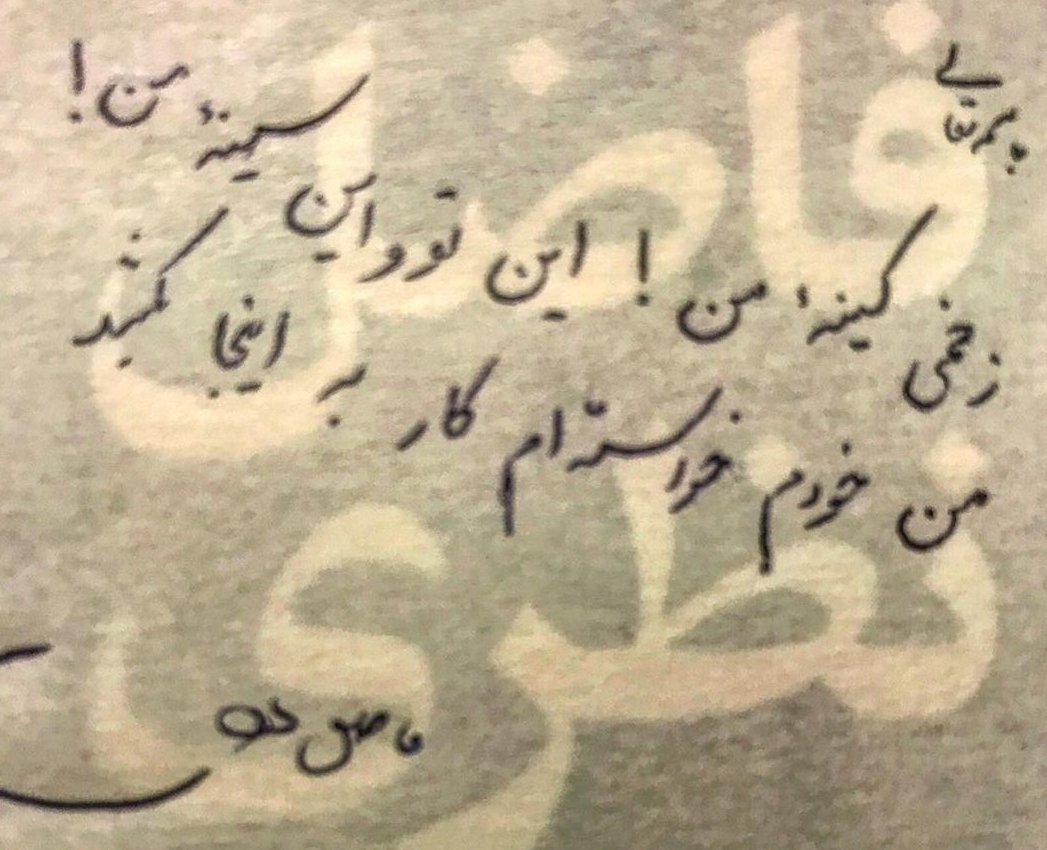 فاضل
زخمی کینهٔ من! این تو و این سینهٔ من!
من خودم خواسته‌ام کار به اینجا بکشد
نظری